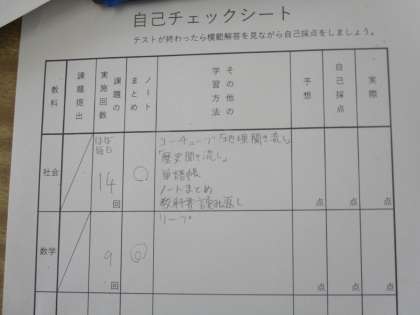 自己チェックシート
テストが終わったら模範解答を見ながら自己採点をしましょう。
教科
課題提出
課題の実施回数
ノートまとめ
その他の学習の方法
予想
自己採点
実際
社会
ほぼ毎日
14回
○
ユーチューブ「地理聞き流し」
「歴史聞き流し」
単語帳
ノートまとめ
教科書
点
点
点
数学
9回
◎
リープ
点
点
点